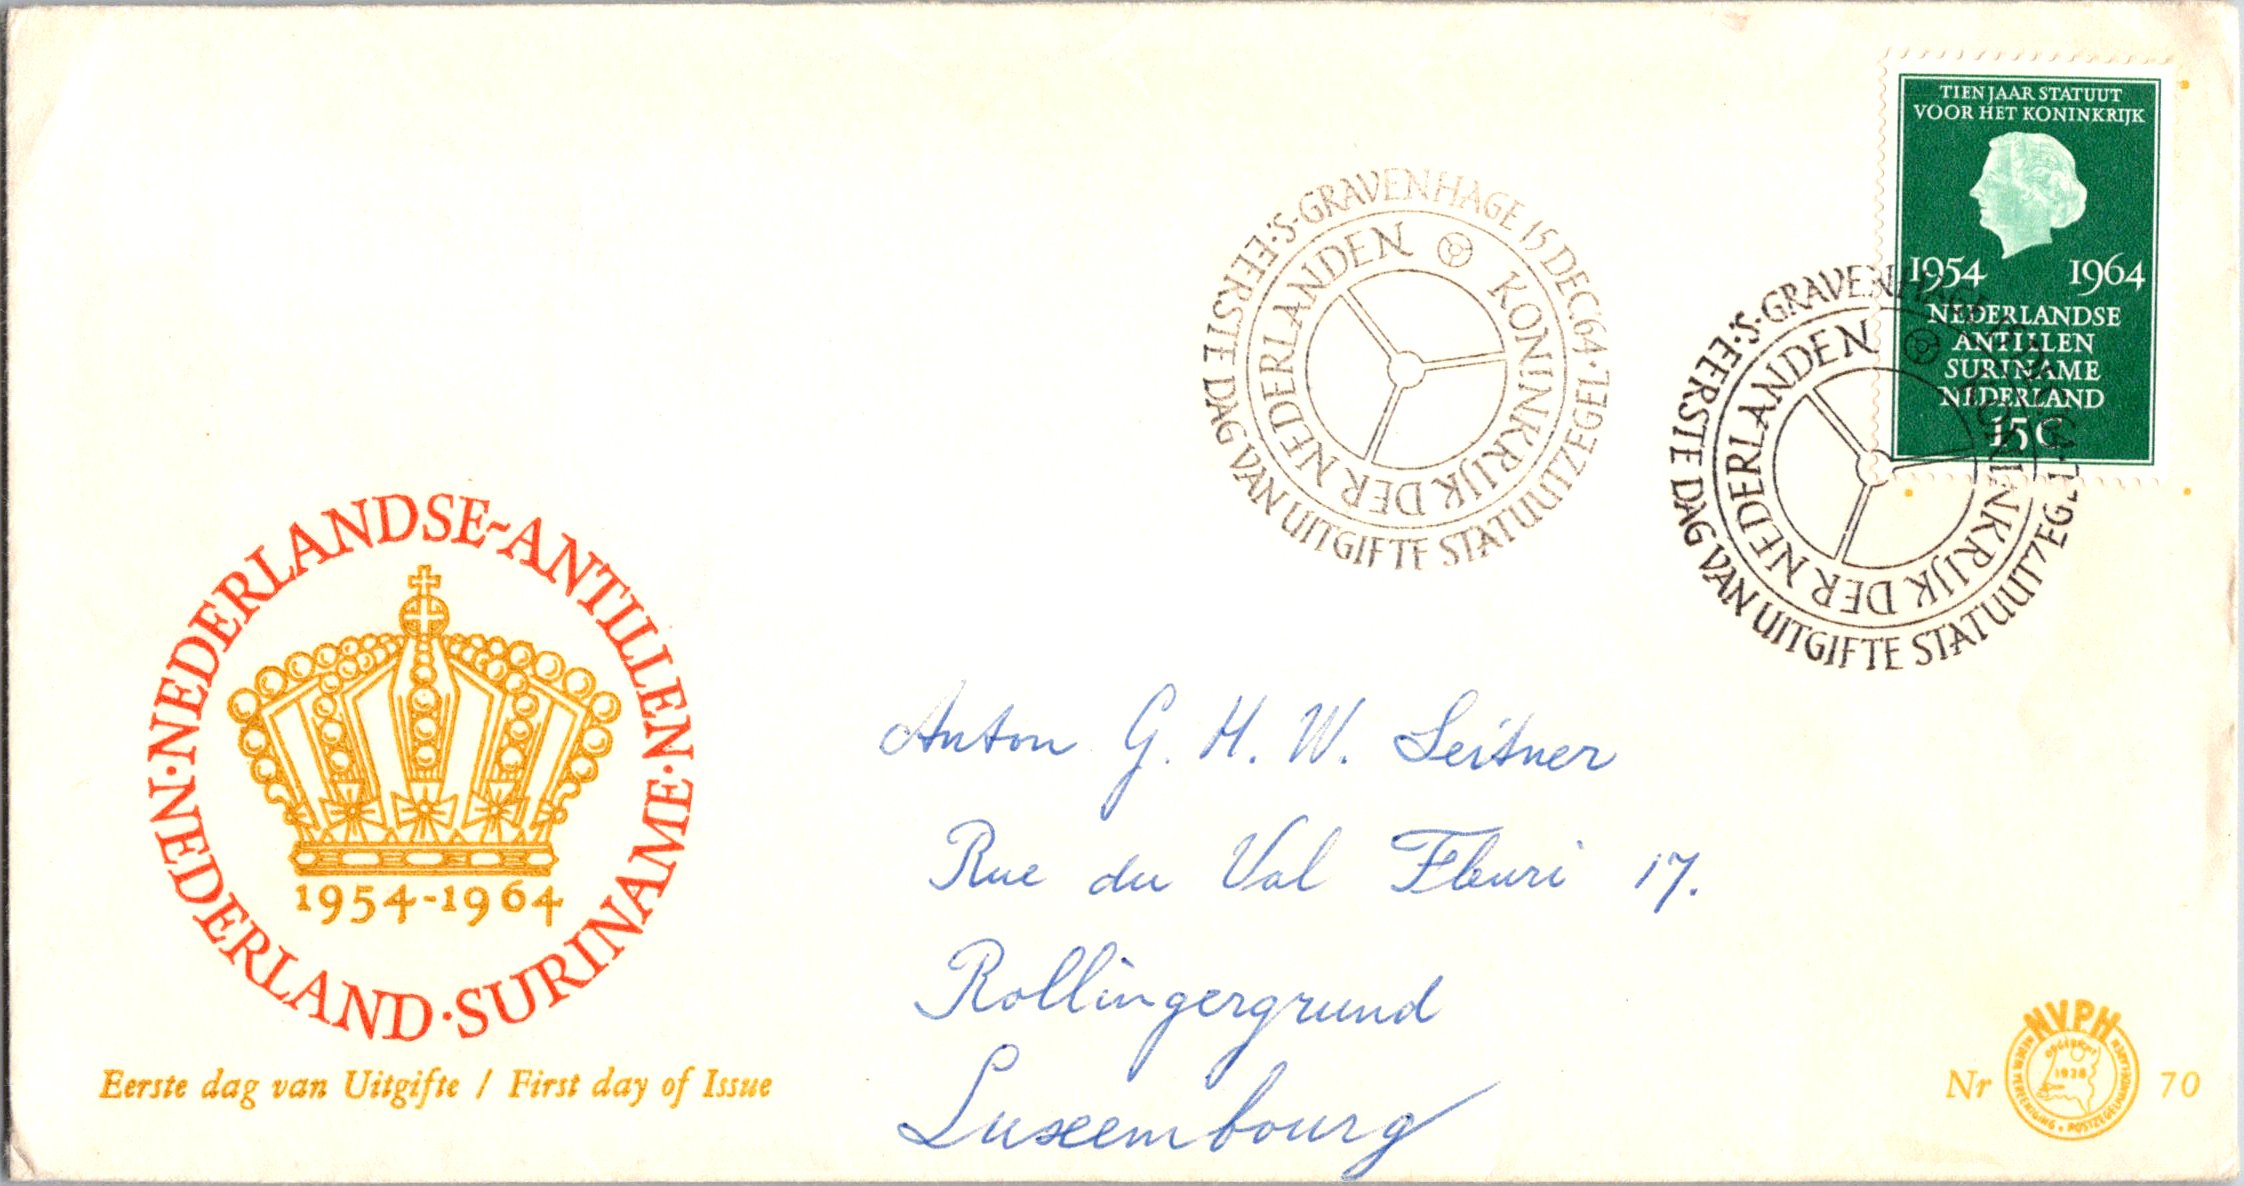 TIEN JAAR STATUUT
VOOR HET KONINKRIJK
1954 1964
NEDERLANDSE
ANTILLEN
SURINAME
NEDERLAND
15 C
'S-GRAVENHAGE 15 DEC 64 · EERSTE DAG VAN UITGIFTE STATUUTZEGEL
KONINKRIJK DER NEDERLANDEN
'S-GRAVENHAGE 15 DEC 64 · EERSTE DAG VAN UITGIFTE STATUUTZEGEL
KONINKRIJK DER NEDERLANDEN
· NEDERLANDSE-ANTILLEN · SURINAME · NEDERLAND
1954-1964
Eerste dag van Uitgifte / First day of Issue
Anton G. H. W. Seitner
Rue du Val Fleuri 17.
Rollingergrund
Luxembourg
Nr 70
NVPH
OPGERICHT
1928
NEDERL VEREENIGING · POSTZEGELHANDELAREN